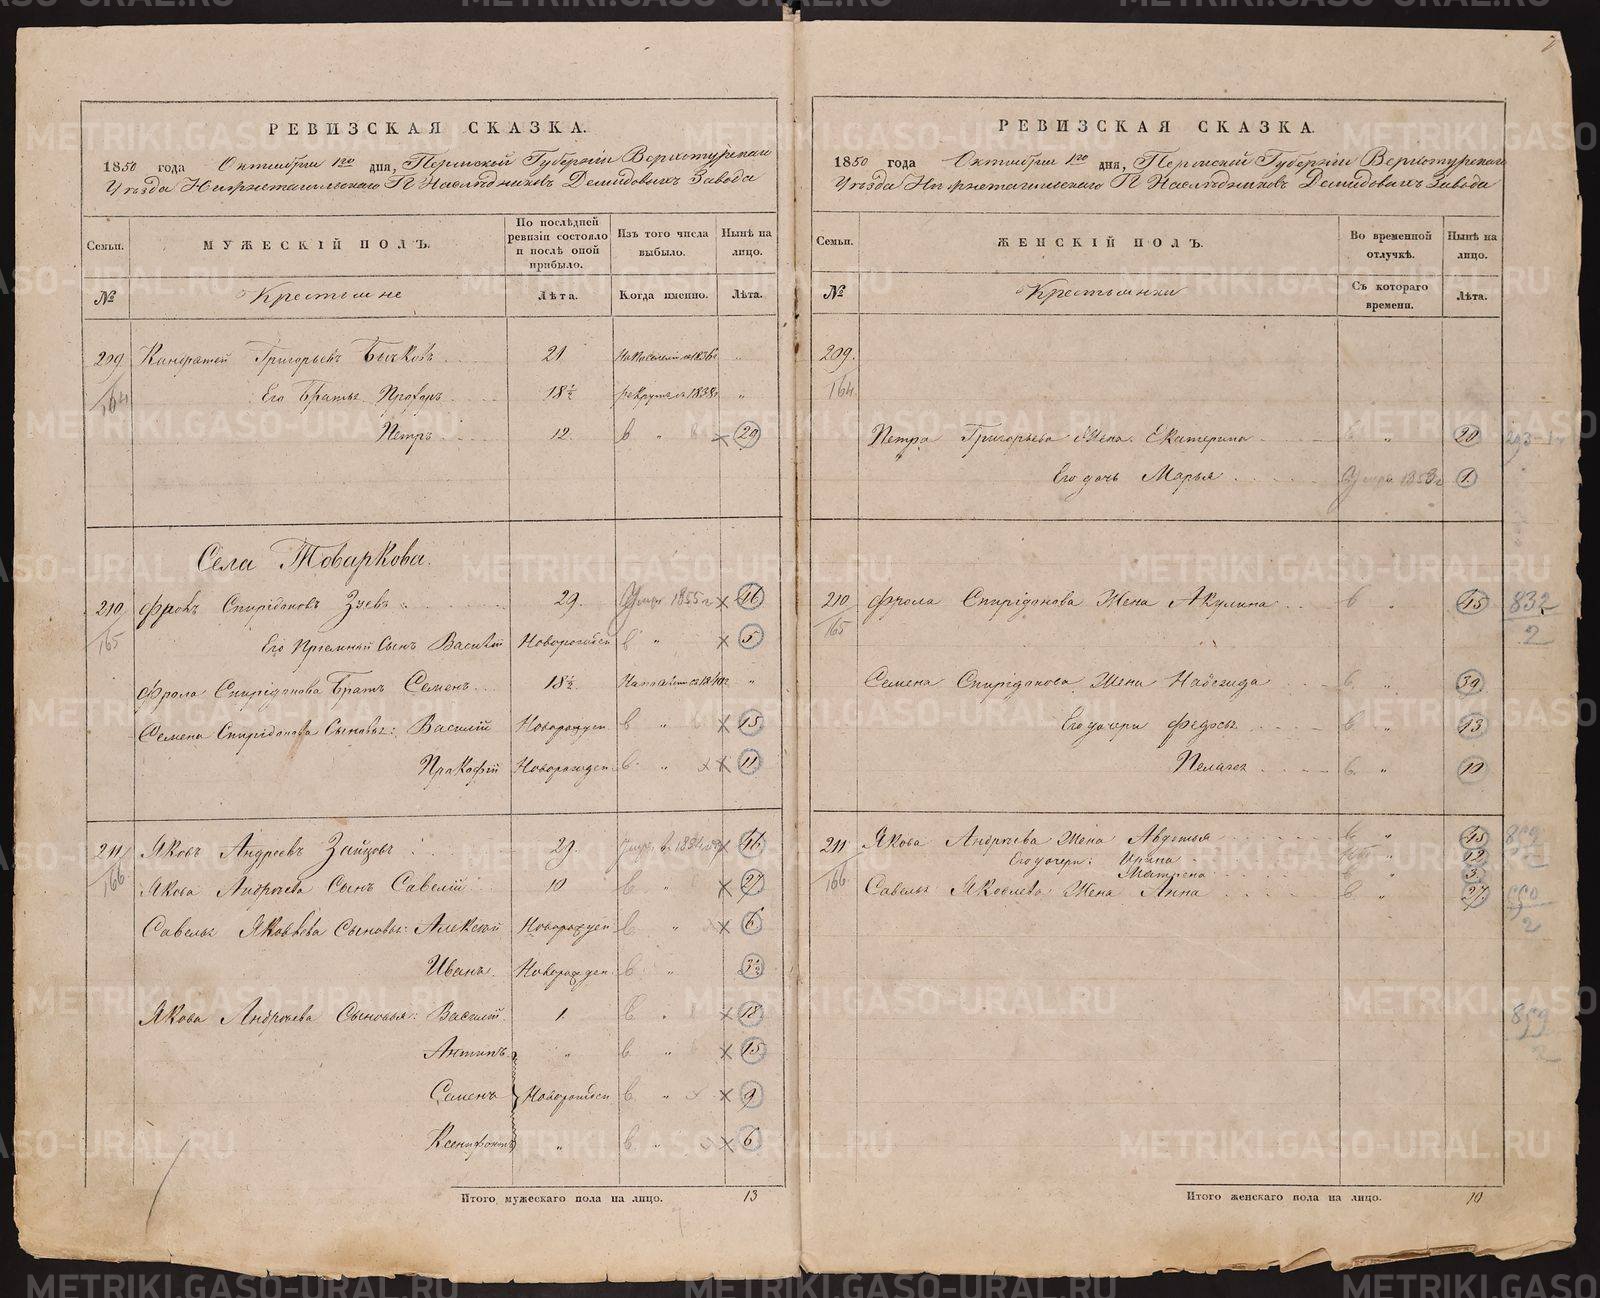 РЕВИЗСКАЯ СКАЗКА.
1850 года Октября 1го дня, Пермской Губерніи Верхотурскаго
Уѣзда Нижнетагильскаго П Наслѣдниковъ Демидовыхъ Завода
Семьи. МУЖЕСКІЙ ПОЛЪ. По послѣдней ревизіи состояло и послѣ оной прибыло. Изъ того числа выбыло. Нынѣ на лицо.
№ Крестьяне Лѣта. Когда именно. Лѣта.
209 Григорьевъ Бычковъ 21 "
164 Его Братья Прохоръ 18½ 1838 "
Петръ 12 в " × 29
Села Товаркова.
210 Фролъ Спиридоновъ Зуевъ 29. Умре 1855 × 46
165 Его Пріемный Сынъ Василій Новорожден в " × 5
Фрола Спиридонова Братъ Семенъ 18½ 1840 "
Семена Спиридонова Сыновья: Василій Новорожден в " × 15
Прокофій Новорожден в " × 11
211 Яковъ Андреевъ Зайцовъ 29. × 46
166 Якова Андреева Сынъ Савелій 10 в " × 27
Савелья Яковлева Сыновья: Алексей Новорожден в " × 6
Иванъ Новорожден в " 3½
Якова Андреева Сыновья: Василій 1 в " × 18
Антипъ " в " × 15
Семенъ Новорожден в " × 9
Ксенифонтъ " в " × 6
Итого мужескаго пола на лицо. 13
РЕВИЗСКАЯ СКАЗКА.
1850 года Октября 1го дня, Пермской Губерніи Верхотурскаго
Уѣзда Нижнетагильскаго П Наслѣдниковъ Демидовыхъ Завода
Семьи. ЖЕНСКІЙ ПОЛЪ. Во временной отлучкѣ. Нынѣ на лицо.
№ Крестьянки Съ котораго времени. Лѣта.
209.
164
Петра Григорьева Жена Екатерина в " 20
Его дочь Марья Умре 1853 1
210 Фрола Спиридонова Жена Акулина в 45 832
165 2
Семена Спиридонова Жена Надежда в " 39
Его дочери Федосья в " 13
Пелагея в " 10
211 Якова Андреева Жена Авдотья в " 45 859
Его дочери: Ирина " 12
Матрена " 3
166 Савелья Яковлева Жена Анна в " 27
2
859
2
Итого женскаго пола на лицо. 10
METRIKI.GASO-URAL.RU